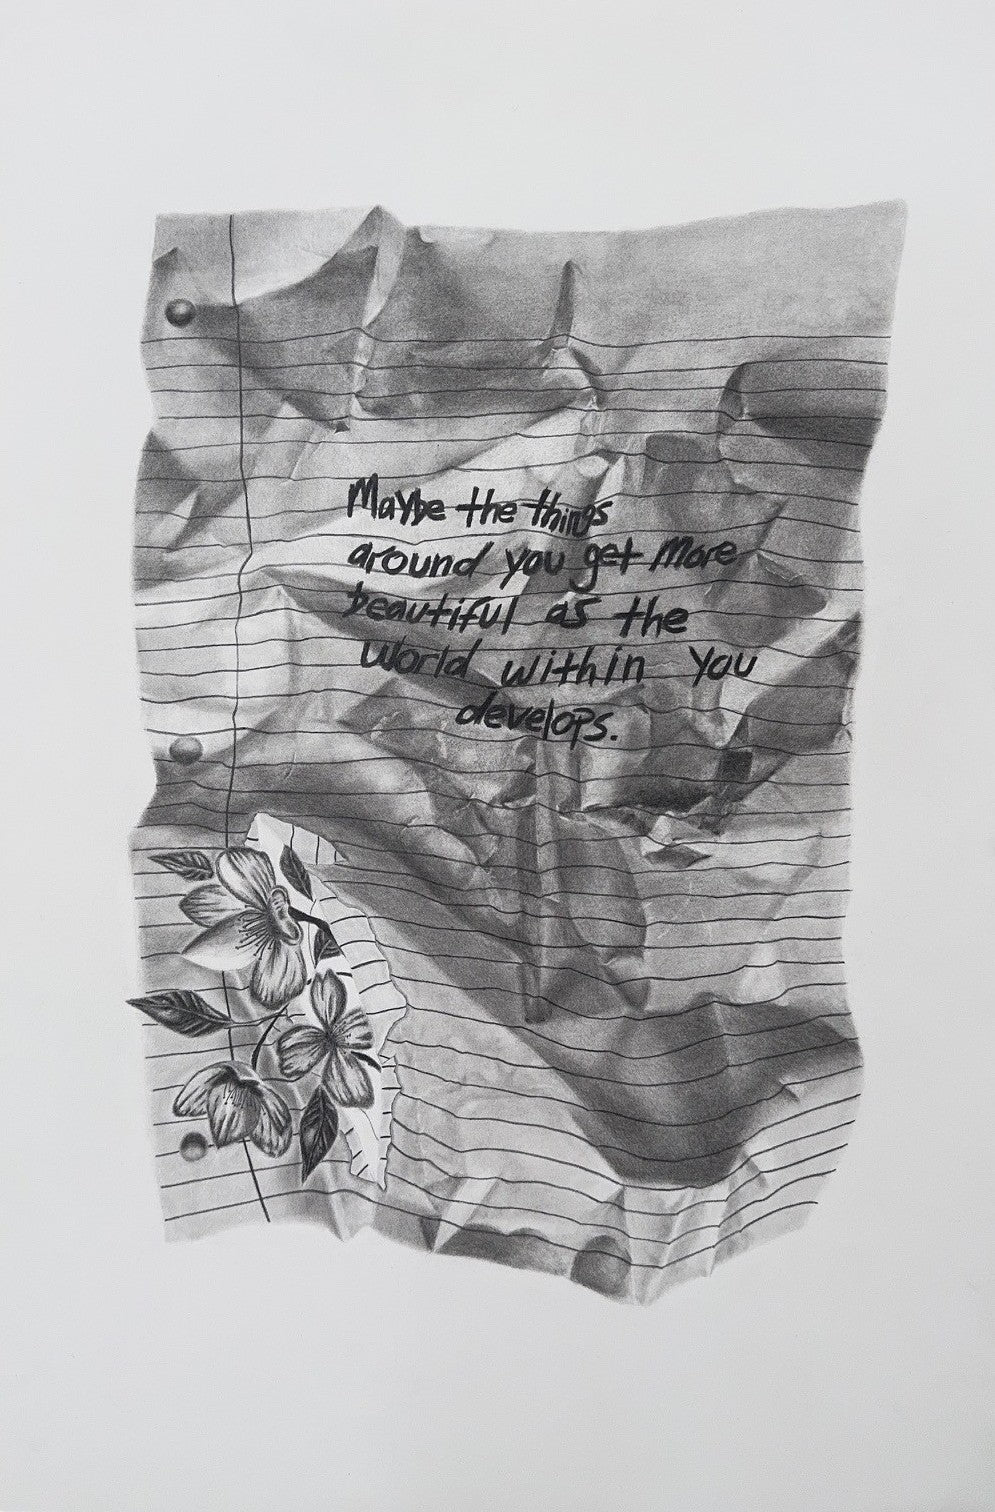 Maybe the things
around you get more
beautiful as the
world within you
develops.